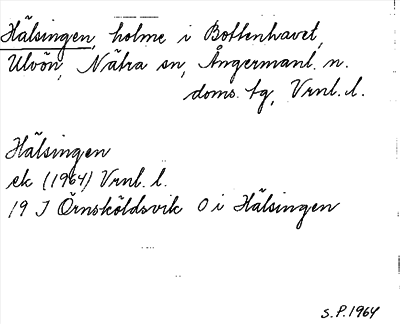 Hälsingen, holme i Bottenhavet,
Ulvön, Nätra sn, Ångermanl. n.
doms. tg, Vrnl. l.
Hälsingen
ek (1964) Vrnl. l.
19 J Örnsköldsvik O i Hälsingen
S.P. 1964